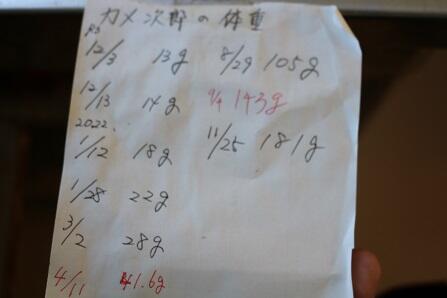 カメ次郎の体重
12/3 13g
12/13 14g
2022.
1/12 18g
1/28 22g
3/2 28g
4/11 41.6g
8/29 105g
9/9 143g
11/25 181g